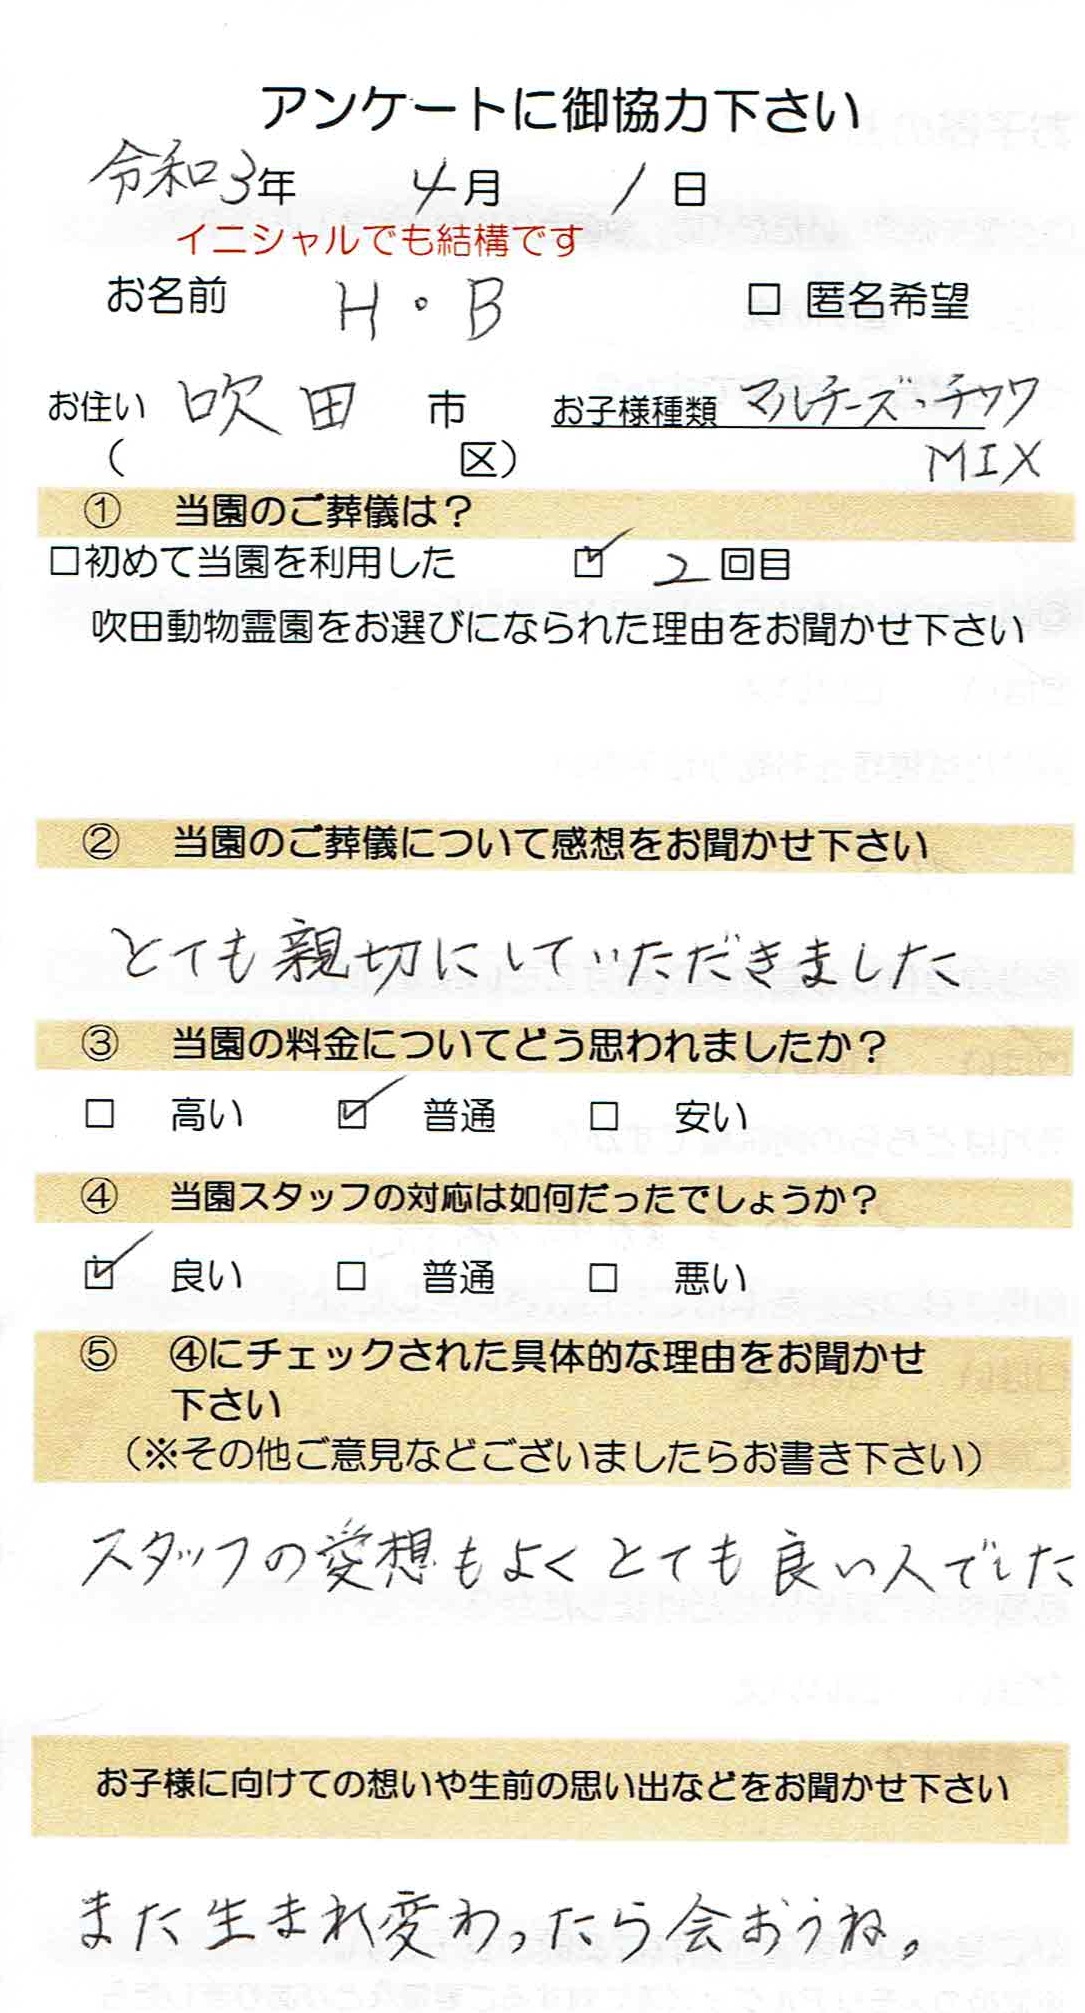 アンケートに御協力下さい
令和3年 4月 1日
イニシャルでも結構です
お名前 H・B □ 匿名希望
お住い 吹田 市 お子様種類 マルチーズ・チワワ
( 区) MIX
① 当園のご葬儀は？
□初めて当園を利用した ☑ 2回目
吹田動物霊園をお選びになられた理由をお聞かせ下さい
② 当園のご葬儀について感想をお聞かせ下さい
とても親切にしていただきました
③ 当園の料金についてどう思われましたか？
□ 高い ☑ 普通 □ 安い
④ 当園スタッフの対応は如何だったでしょうか？
☑ 良い □ 普通 □ 悪い
⑤ ④にチェックされた具体的な理由をお聞かせ
下さい
（※その他ご意見などございましたらお書き下さい）
スタッフの愛想もよくとても良い人でした
お子様に向けての想いや生前の思い出などをお聞かせ下さい
また生まれ変わったら会おうね。